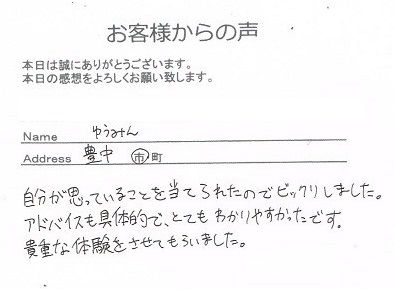 お客様からの声
本日は誠にありがとうございます。
本日の感想をよろしくお願い致します。
Name ゆうみん
Address 豊中 市町
自分が思っていることを当てられたのでビックリしました。
アドバイスも具体的で、とてもわかりやすかったです。
貴重な体験をさせてもらいました。